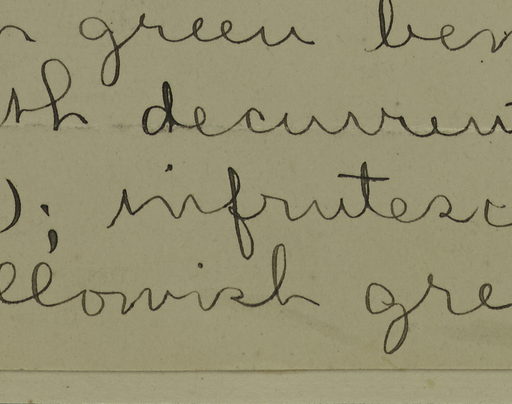 green ben
th decurren
); infrutesc
llowish gre